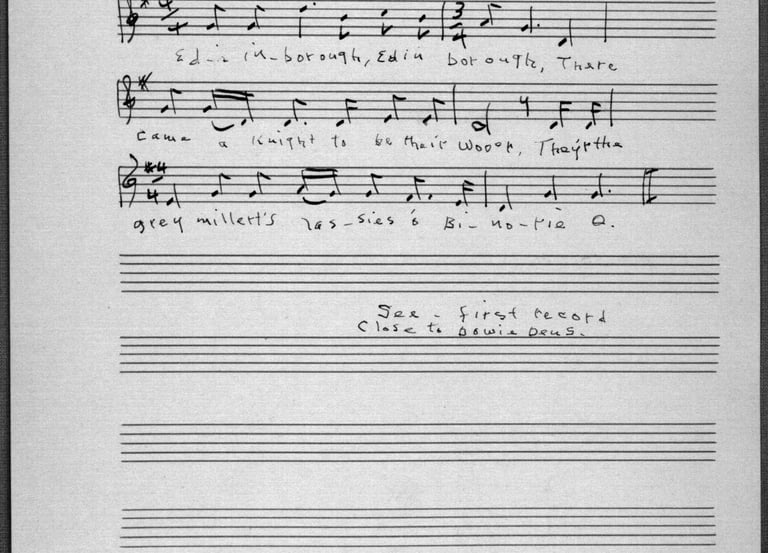 Ed-in in-borough, Edin borough, There
came a Knight to be their Wooer, They're the
grey millert's las-sies o' Bi-no-rie O.
See - first record
Close to Bowie Dens.